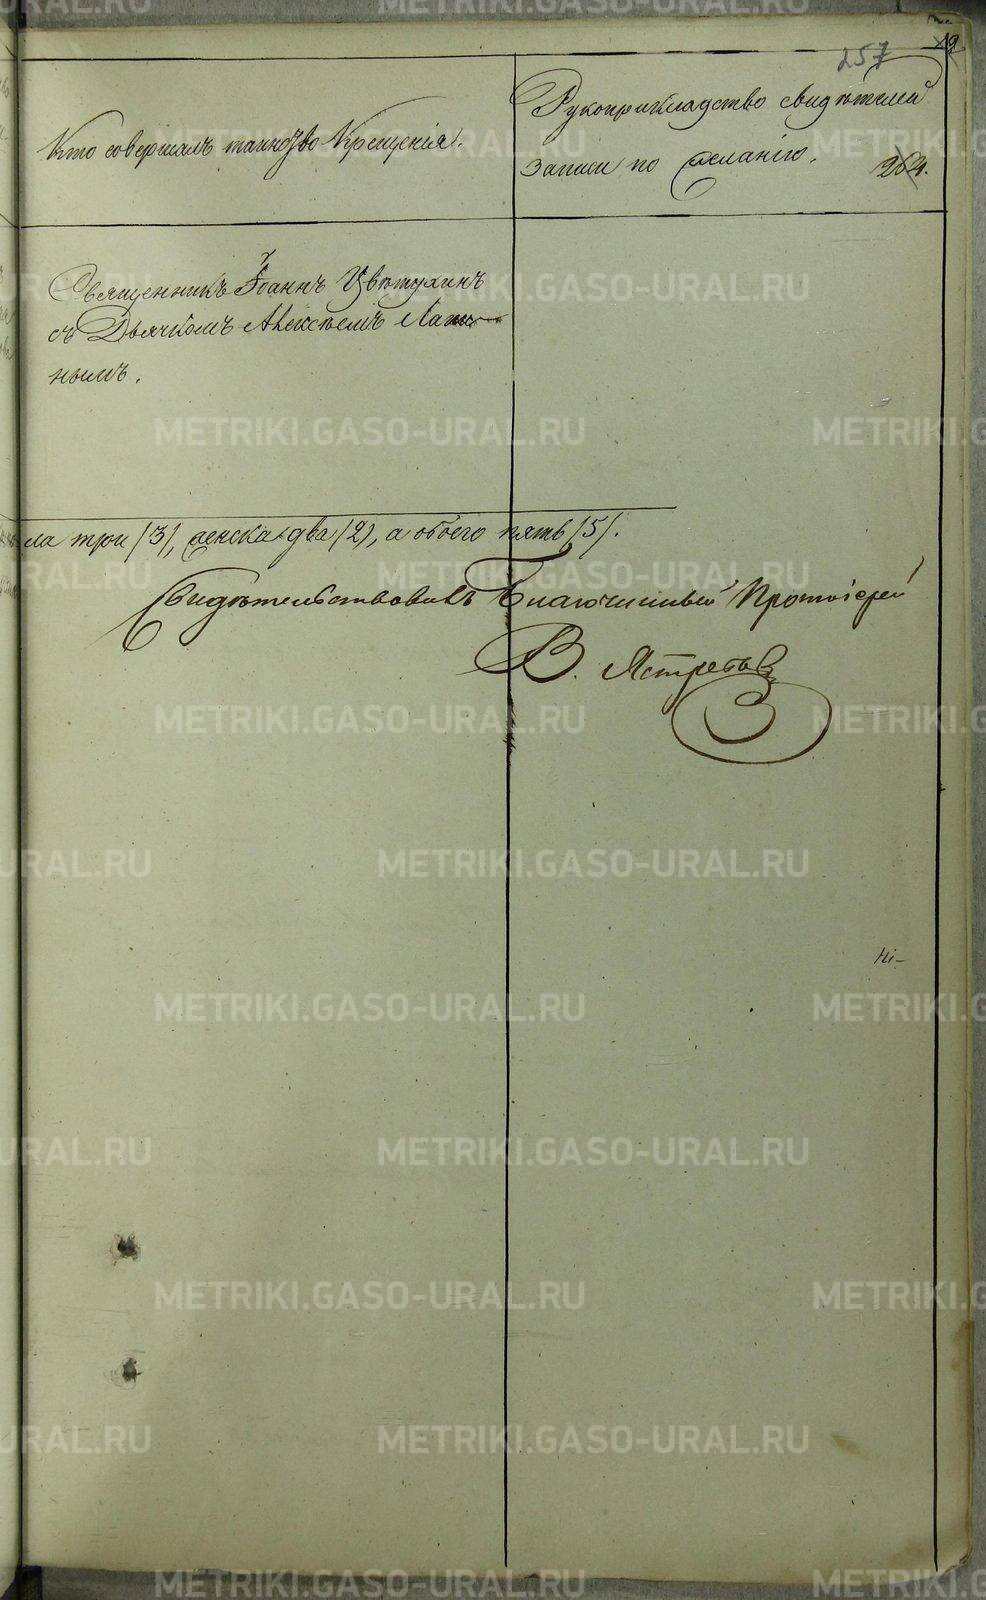 257
Кто совершалъ таинство Крещенія.
Рукоприкладство свидѣтелей
записи по желанію.
264.
Священникъ Іоаннъ Цвѣтухинъ
съ Дьячкомъ Алексѣемъ
нымъ.
ла три (3), женска два (2), а обоего пять (5).
Свидѣтельствовалъ Благочинный Протоіерей
В. Ястребовъ
METRIKI.GASO-URAL.RU